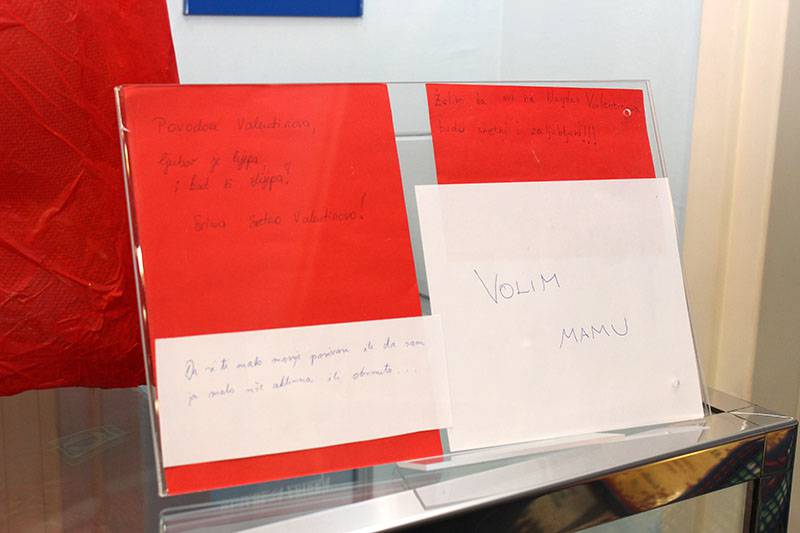 Povodom Valentinova,
ljubav je lijepa
i kad si slijepa!
Svima sretno Valentinovo!
Želim da svi na blagdan Valentinova
budu sretni i zaljubljeni!!!
Da si ti malo manje ili da sam
ja malo više ili obrnuto...
VOLIM
MAMU